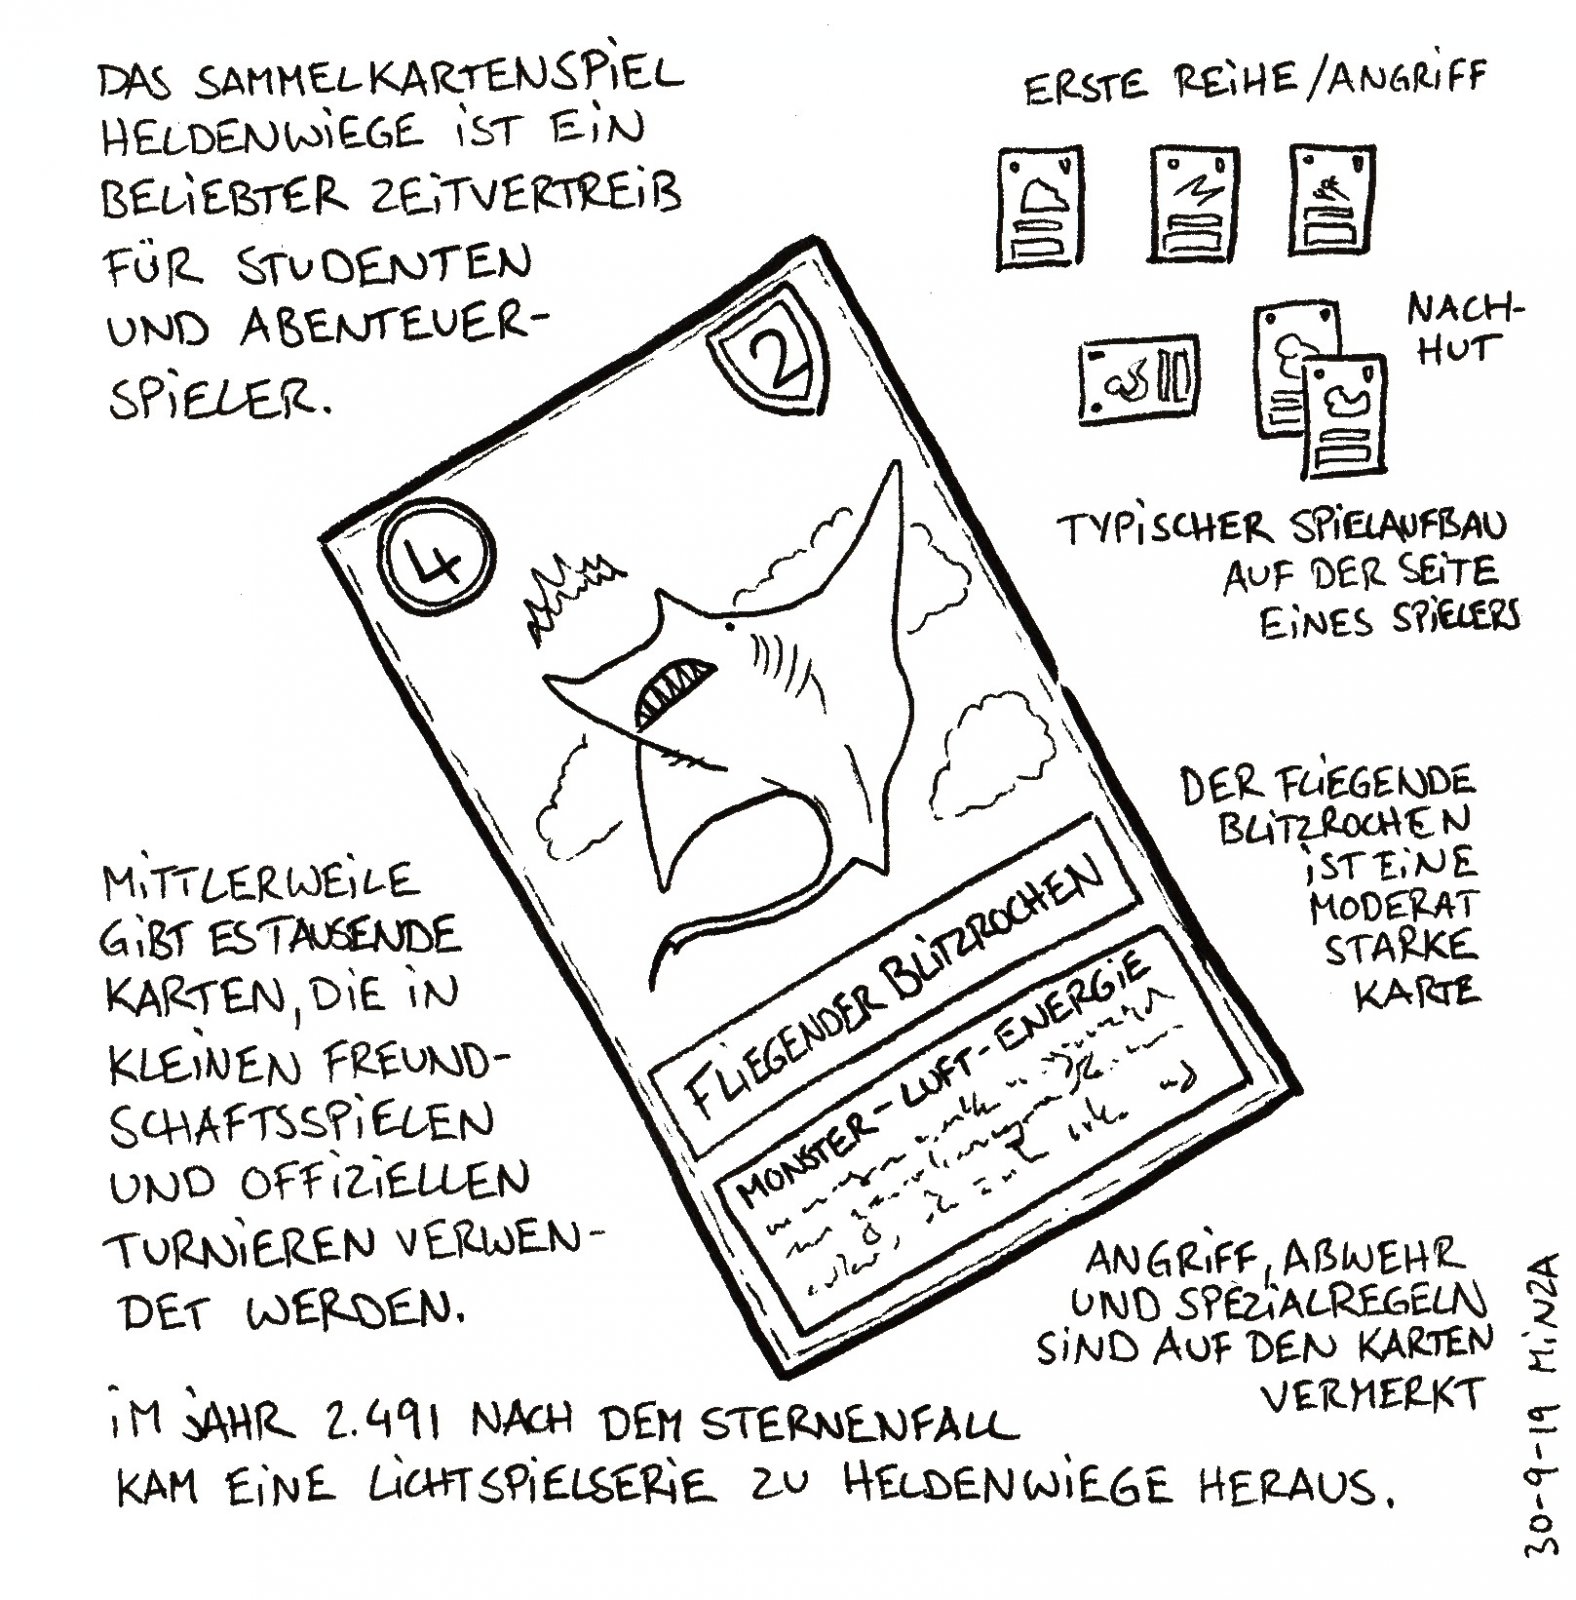 DAS SAMMELKARTENSPIEL
HELDENWIEGE IST EIN
BELIEBTER ZEITVERTREIB
FÜR STUDENTEN
UND ABENTEUER-
SPIELER.
ERSTE REIHE/ANGRIFF
NACH-
HUT
TYPISCHER SPIELAUFBAU
AUF DER SEITE
EINES SPIELERS
2
4
FLIEGENDER BLITZROCHEN
MONSTER-LUFT-ENERGIE
DER FLIEGENDE
BLITZROCHEN
IST EINE
MODERAT
STARKE
KARTE
MITTLERWEILE
GIBT ES TAUSENDE
KARTEN, DIE IN
KLEINEN FREUND-
SCHAFTSSPIELEN
UND OFFIZIELLEN
TURNIEREN VERWEN-
DET WERDEN.
ANGRIFF, ABWEHR
UND SPEZIALREGELN
SIND AUF DEN KARTEN
VERMERKT
IM JAHR 2.491 NACH DEM STERNENFALL
KAM EINE LICHTSPIELSERIE ZU HELDENWIEGE HERAUS.
30-9-19 MINZA